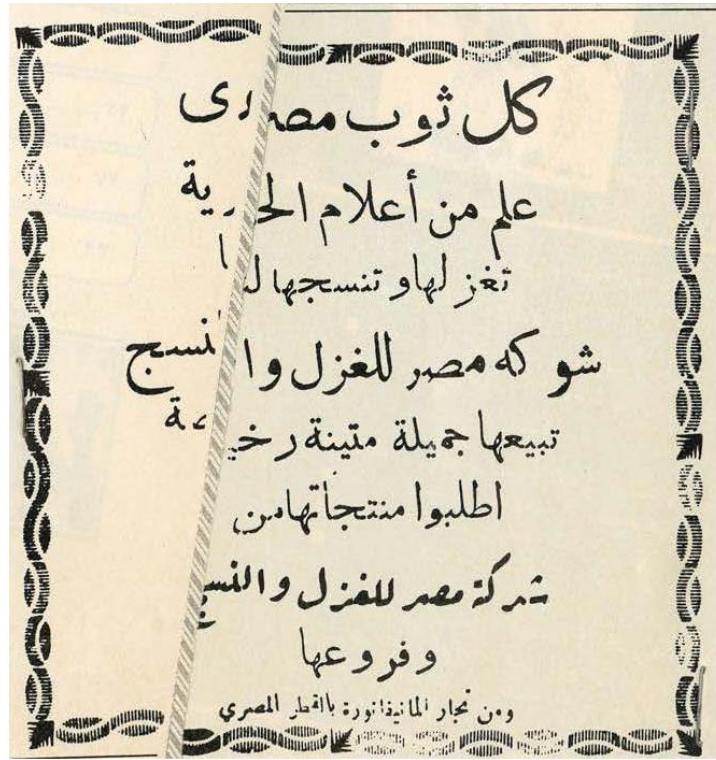 كل ثوب مصرى
علم من أعلام الحرية
تغزلها وتنسجها لنا
شركه مصر للغزل والنسج
تبيعها جميلة متينة رخيصة
اطلبوا منتجاتها من
شركة مصر للغزل والنسج
وفروعها
ومن تجار المانيفاتورة بالقطر المصري